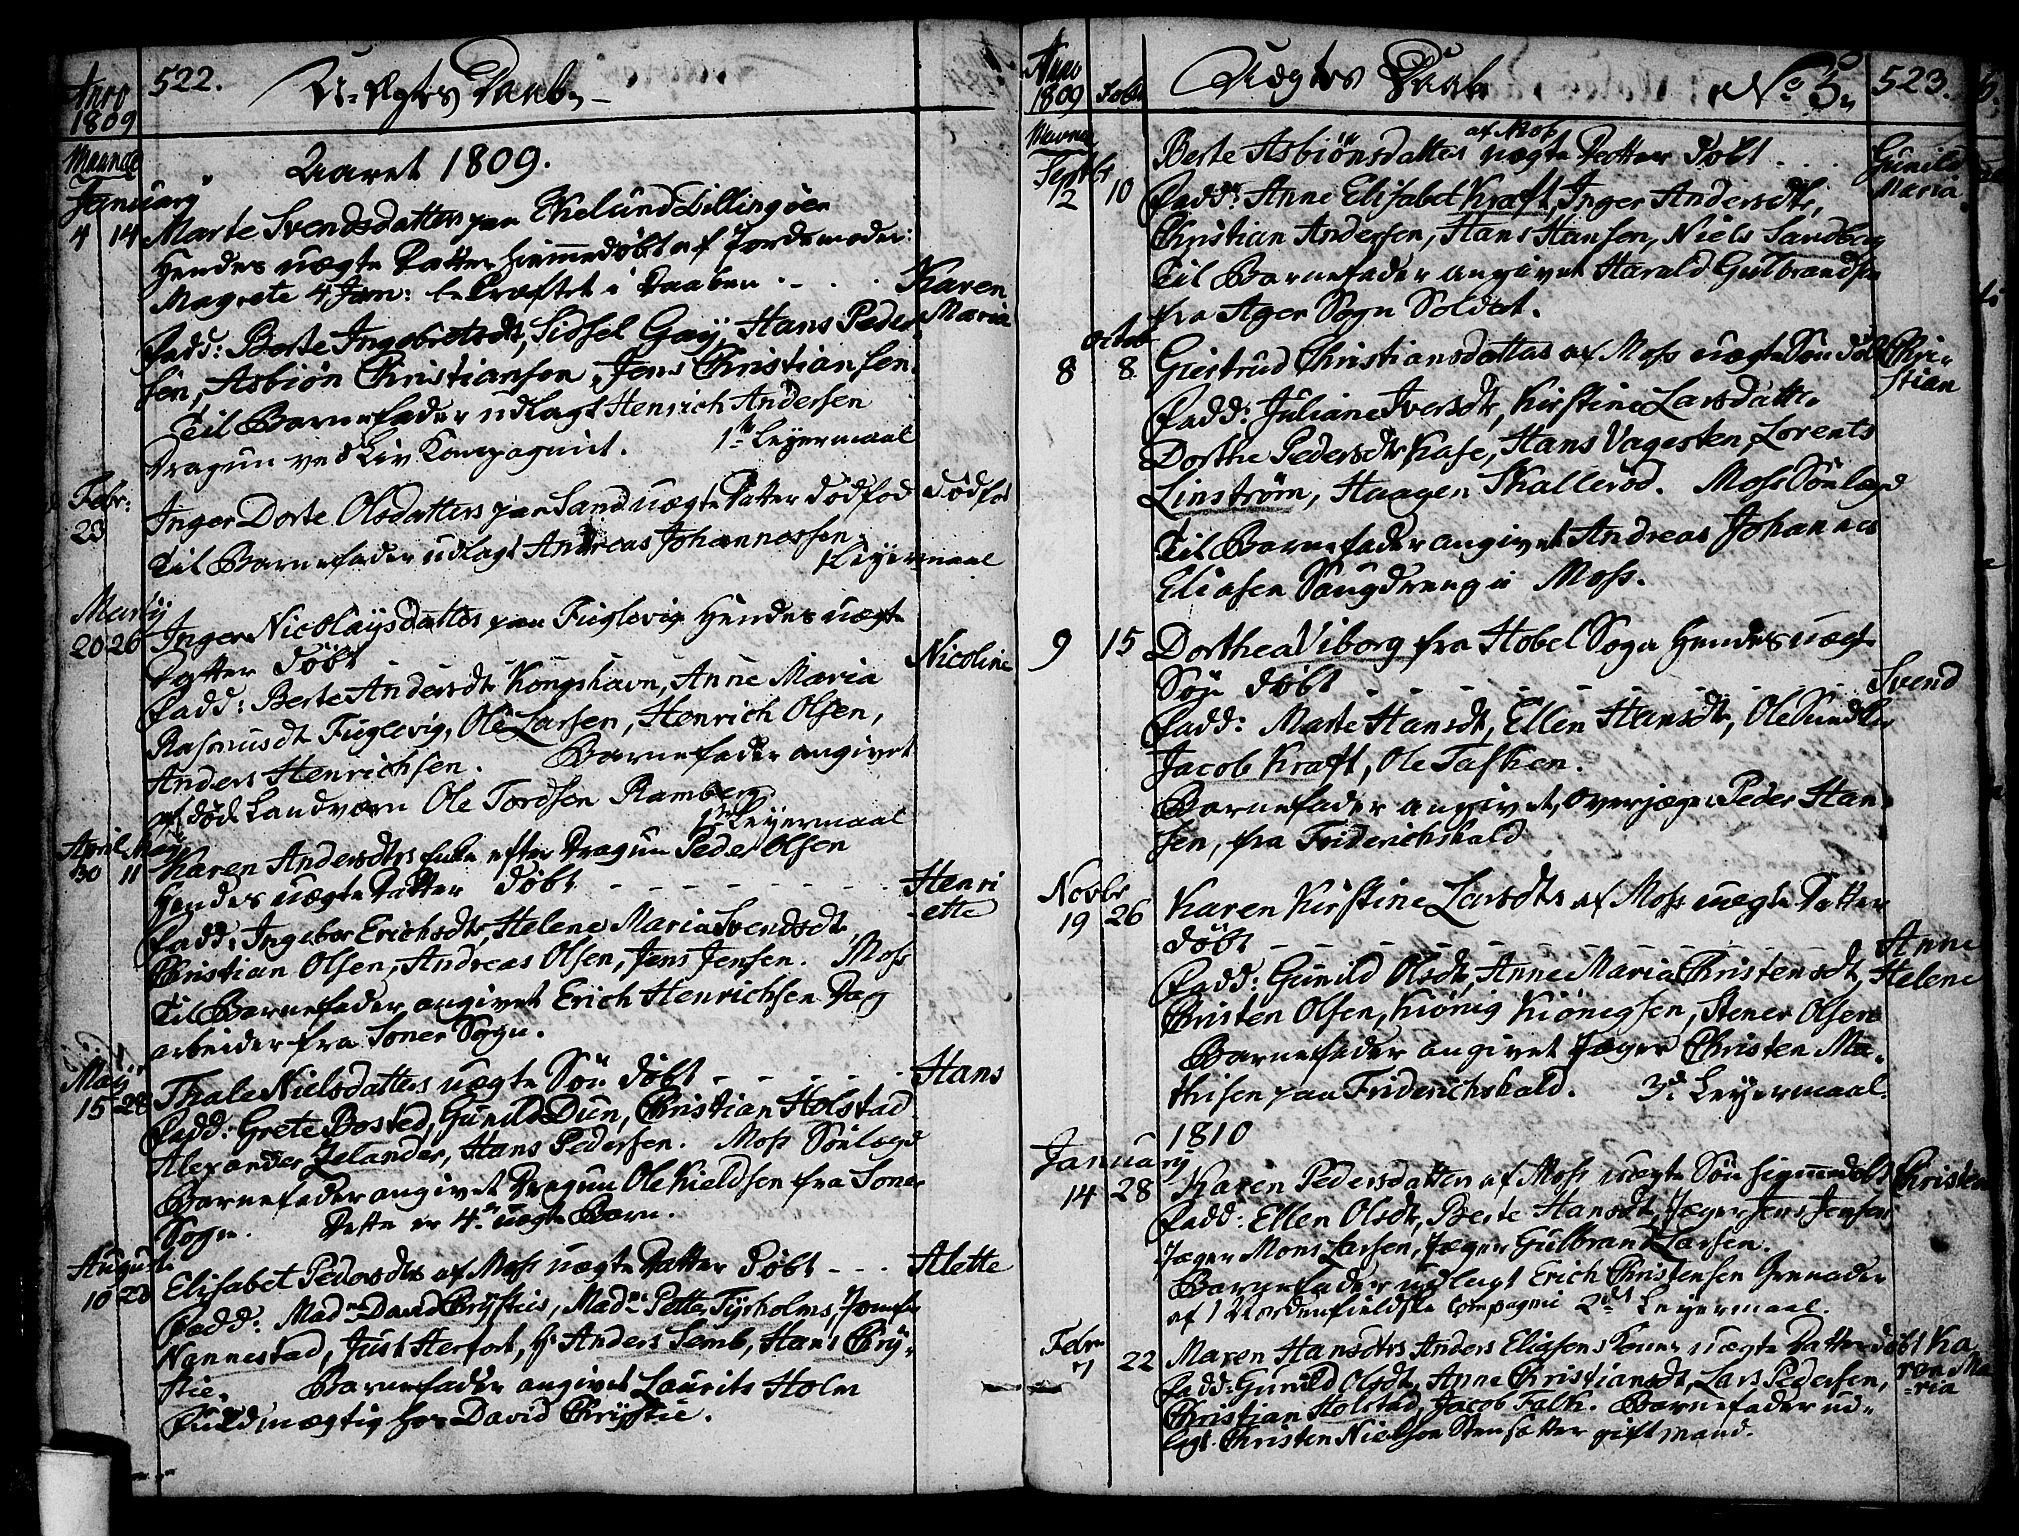 Anno 1809
522.
U-Ægte Daab,
Maaned
Aaret 1809.
January
4 14 Marte Svendsdatters paa Ekelund Dillingöen
Hendes uægte Datter hiemmedöbt af Jordemoder
Magrete 4 Jan: bekræftet i Daaben . . . Karen Maria
Fadd: Berte Ingebretsdt, Sidsel Gay, Hans Peder
sen, Asbiön Christiansen, Jens Christiansen.
Til Barnefader udlagt Henrich Andersen
Dragun ved Liv Kompagniet. 1te Leyermaal
Febr:
23 Inger Dorte Olsdatters paa Sand uægte Datter dödföd Dödföd
Til Barnefader udlagt Andreas Johannessen.
1 Leyermaal
Marty
20 26 Inger Nicolaysdatters paa Fuglevig Hendes uægte
Datter döbt - - - - - Nicoline
Fadd: Berte Andersdt Kongshavn, Anne Maria
Rasmusdt Fuglevig, Ole Larsen, Henrich Olsen,
Anders Henrichsen. Barnefader angivet
afdöd Landværn Ole Tordsen Ramberg
1te Leyermaal
April May
30 11 Karen Andersdtrs Enke efter Dragun Peder Olsen
Hendes uægte Datter döbt - - - - - - - Henriette
Fadd: Ingebor Erichsdtr, Helene Maria Svendsdt,
Christian Olsen, Andreas Olsen, Jens Jensen. Moss
Til Barnefader angivet Erich Henrichsen Dag
arbeider fra Soner Sogn.
May
15 28 Thale Nielsdatters uægte Sön döbt - - - - Hans
Fadd: Grete Bosted, Gunild Dun, Christian Holstad
Alexander Zelander, Hans Pedersen. Moss Sönlagd
Barnefader angivet Dragun Ole Kieldsen fra Soner
Sogn. Dette er 4de uægte Barn.
August
10 22 Elisabet Pedersdtrs af Moss uægte Datter döbt - - - Alette
Fadd: Madme David Chrysties, Madme Petter Tyrholms, Jomfr
Nannestad, Just Herfort, Hr Anders Semb, Hans Chry-
stie. Barnefader angivet Laurits Holm
Fuldmægtig hos David Chrystie.
Anno 1809 Döbt
Uægte Daab
No 5.
523.
Maaned
Septbr af Moss
2 10 Berte Asbiönsdatters uægte Datter döbt . . . Gunild Maria
Fadd: Anne Elisabet Kraft, Inger Andersdtr,
Christian Andersen, Hans Hansen, Niels Sandberg
Til Barnefader angivet Harald Gulbrandsen
fra Ager Sogn Soldat.
Octob
8 8 Giertrud Christiansdatters af Moss uægte Sön döbt Christian
Fadd: Juliane Iversdtr, Kirstine Larsdatter
Dorthe Pedersdtr Kase, Hans Vagesten, Lorents
Linström, Haagen Skallerød. Moss Sönlagd
Til Barnefader angivet Andreas Johannes
Eliasen Saugdreng i Moss.
9 15 Dorthea Viborg fra Hobel Sogn Hendes uægte
Sön döbt - - - - - - Svend
Fadd: Marte Hansdt, Ellen Hansdtr, Ole Sundbye
Jacob Kraft, Ole Tasken.
Barnefader angivet Overjæger Peder Han-
sen, fra Friderichshald
Novbr
19 26 Karen Kirstine Larsdtrs af Moss uægte Datter
döbt - - - - - - Anne Helene
Fadd: Gunild Olsdtr, Anne Maria Christensdt,
Christen Olsen, Kiönig Kiönigsen, Stener Olsen
Barnefader angivet Jæger Christen Ma-
thisen paa Friderichshald. 3de Leyermaal.
1810
January
14 28 Karen Pedersdatters af Moss uægte Sön hiemmedöbt Christen
Fadd: Ellen Olsdtr, Berte Hansdt, Jæger Jens Jensen
Jæger Mons Larsen, Jæger Gulbrand Larsen.
Barnefader udlagt Erich Christensen Grenader
af 1 Nordenfieldske Compagnie 2det Leyermaal.
Febr
7 22 Maren Hansdtrs Anders Eliasens Kones uægte Datter döbt Karen Maria
Fadd: Gunild Olsdt, Anne Christiansdt, Lars Pedersen,
Christian Holstad, Jacob Falk. Barnefader ud-
lagt Christen Nielsen Stensætter gift Mand.